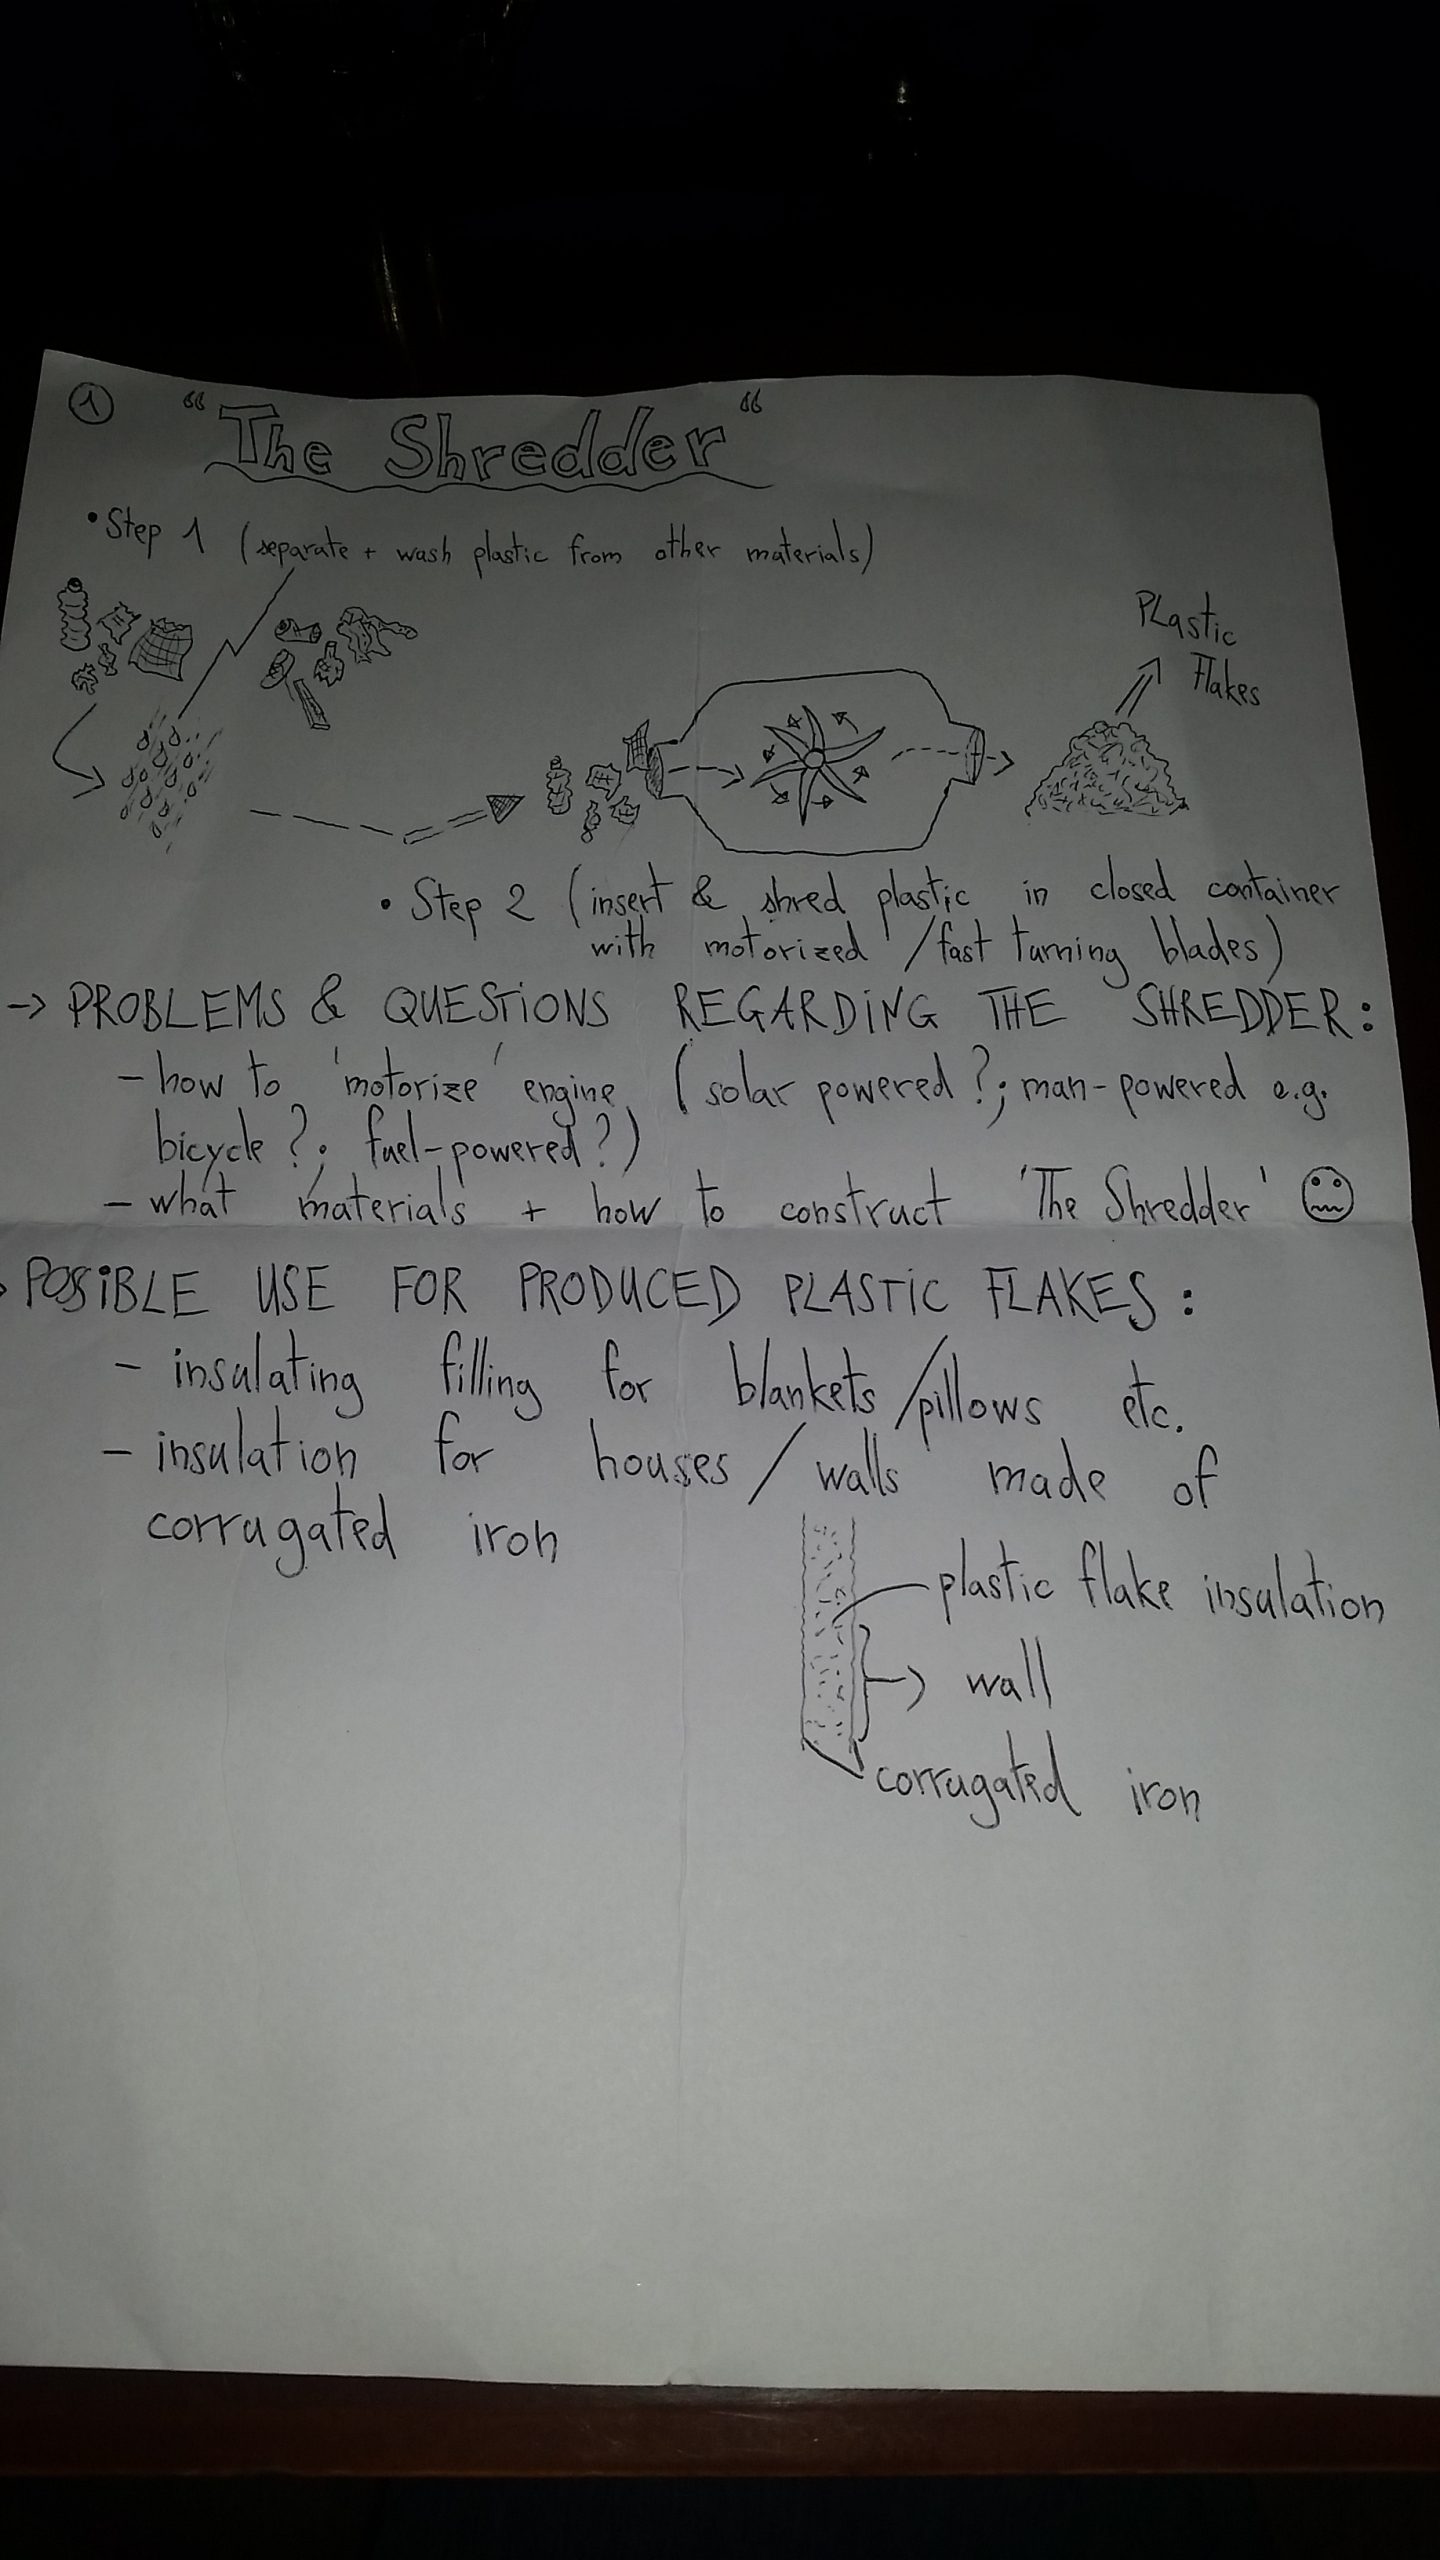 1
“The Shredder“
• Step 1 (separate + wash plastic from other materials)
Plastic
Flakes
• Step 2 (insert & shred plastic in closed container
with motorized / fast turning blades)
→ PROBLEMS & QUESTIONS REGARDING THE SHREDDER:
- how to 'motorize' engine (solar powered?; man-powered e.g.
bicycle?; fuel-powered?)
- what materials + how to construct 'The Shredder'
POSSIBLE USE FOR PRODUCED PLASTIC FLAKES:
- insulating filling for blankets/pillows etc.
- insulation for houses / walls made of
corrugated iron
plastic flake insulation
→ wall
corrugated iron